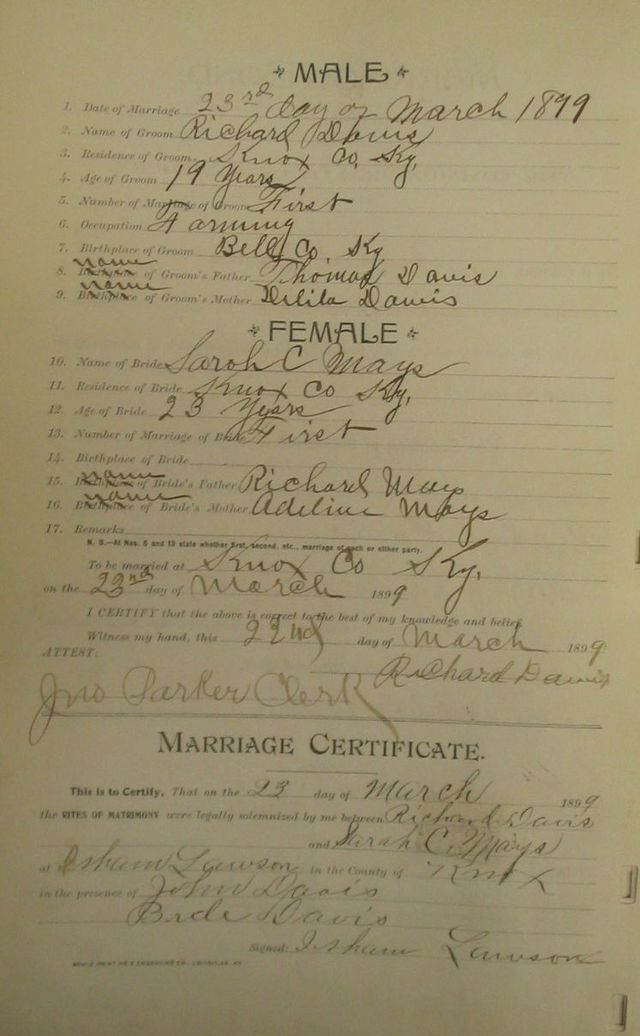 MALE
1. Date of Marriage 23rd day of March 1899
2. Name of Groom Richard Davis
3. Residence of Groom Knox Co. Ky.
4. Age of Groom 19 Years
5. Number of Marriage of Groom First
6. Occupation Farming
7. Birthplace of Groom Bell Co. Ky
name
8. Birthplace of Groom's Father Thomas Davis
name
9. Birthplace of Groom's Mother Delila Davis
FEMALE
10. Name of Bride Sarah C Mays
11. Residence of Bride Knox Co Ky.
12. Age of Bride 23 Years
13. Number of Marriage of Bride First
14. Birthplace of Bride
name
15. Birthplace of Bride's Father Richard Mays
name
16. Birthplace of Bride's Mother Adeline Mays
17. Remarks
N. B.—At Nos. 5 and 13 state whether first, second, etc., marriage of each or either party.
To be married at Knox Co Ky.
on the 23rd day of March 1899
I CERTIFY that the above is correct to the best of my knowledge and belief.
Witness my hand, this 22nd day of March 1899
ATTEST:
Richard Davis
Jno Parker Clerk
MARRIAGE CERTIFICATE.
This is to Certify, That on the 23 day of March 1899
the RITES OF MATRIMONY were legally solemnized by me between Richard Davis
and Sarah C. Mays
at Isham Lawson in the County of Knox
in the presence of John Davis
Bide Davis
Signed: Isham Lawson